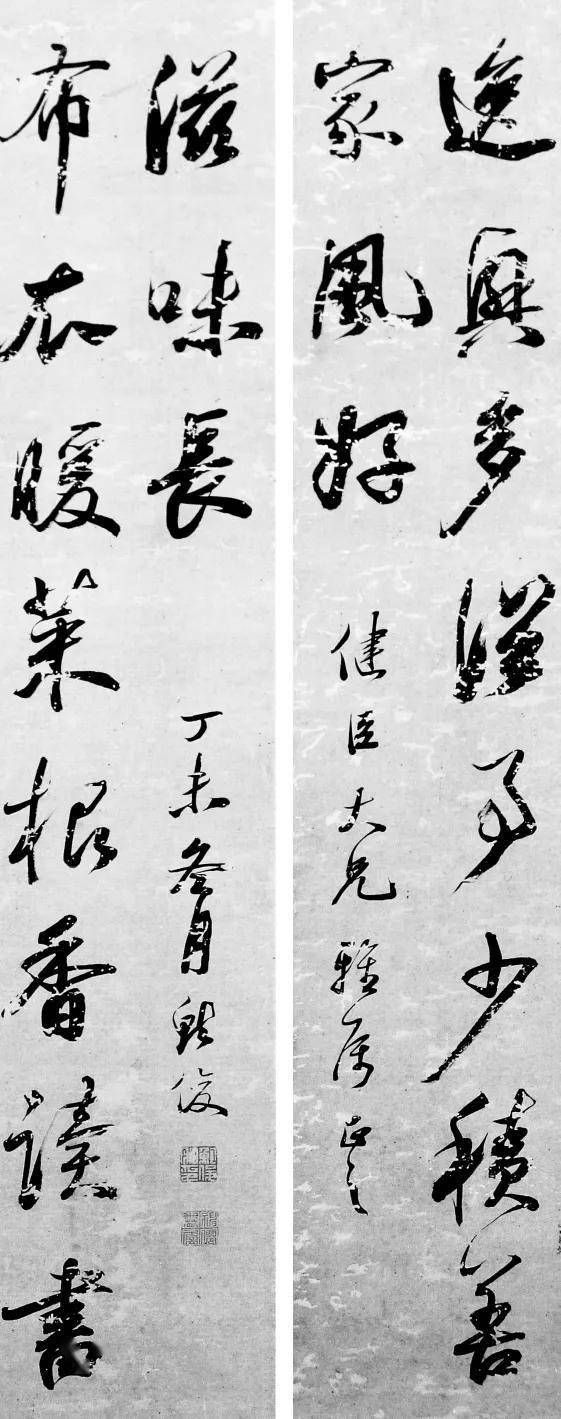 逸興多事少積善
家風好
健臣大兄雅屬正之
布衣暖菜根香讀書
滋味長
丁未冬月鮑俊